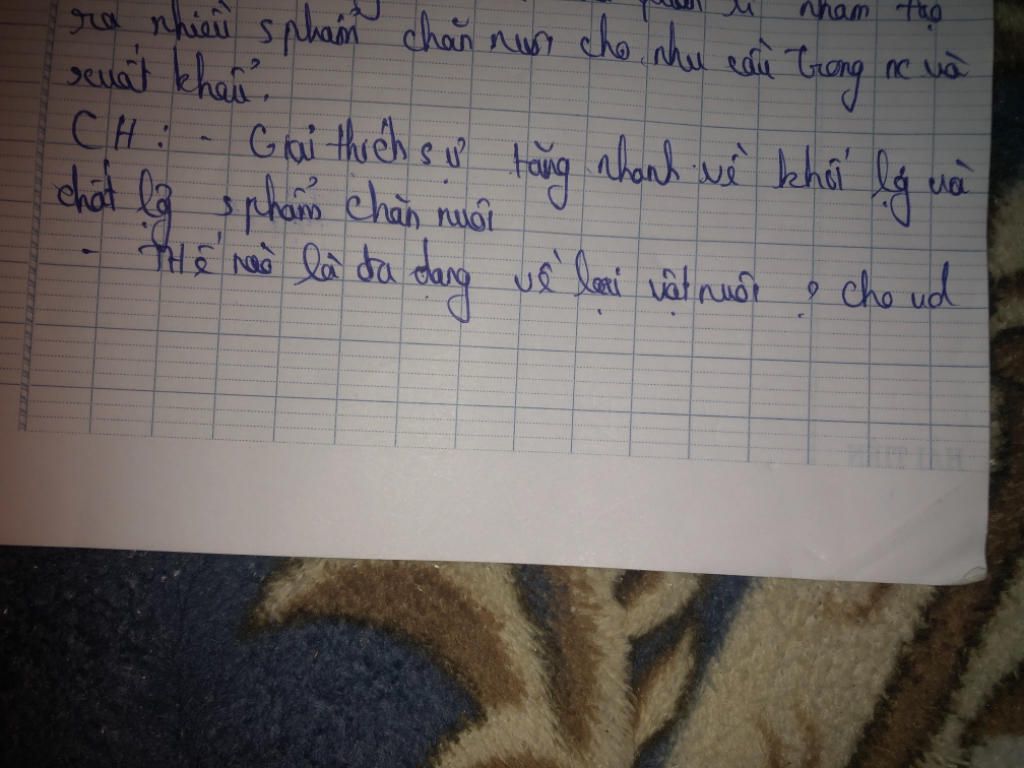 nhằm tạo
ra nhiều sphẩm chăn nuôi cho nhu cầu trong nc và
xuất khẩu.
CH: - Giải thích sự tăng nhanh về khối lg và
chất lg sphẩm chăn nuôi
- Thế nào là đa dạng về loại vật nuôi ? cho vd